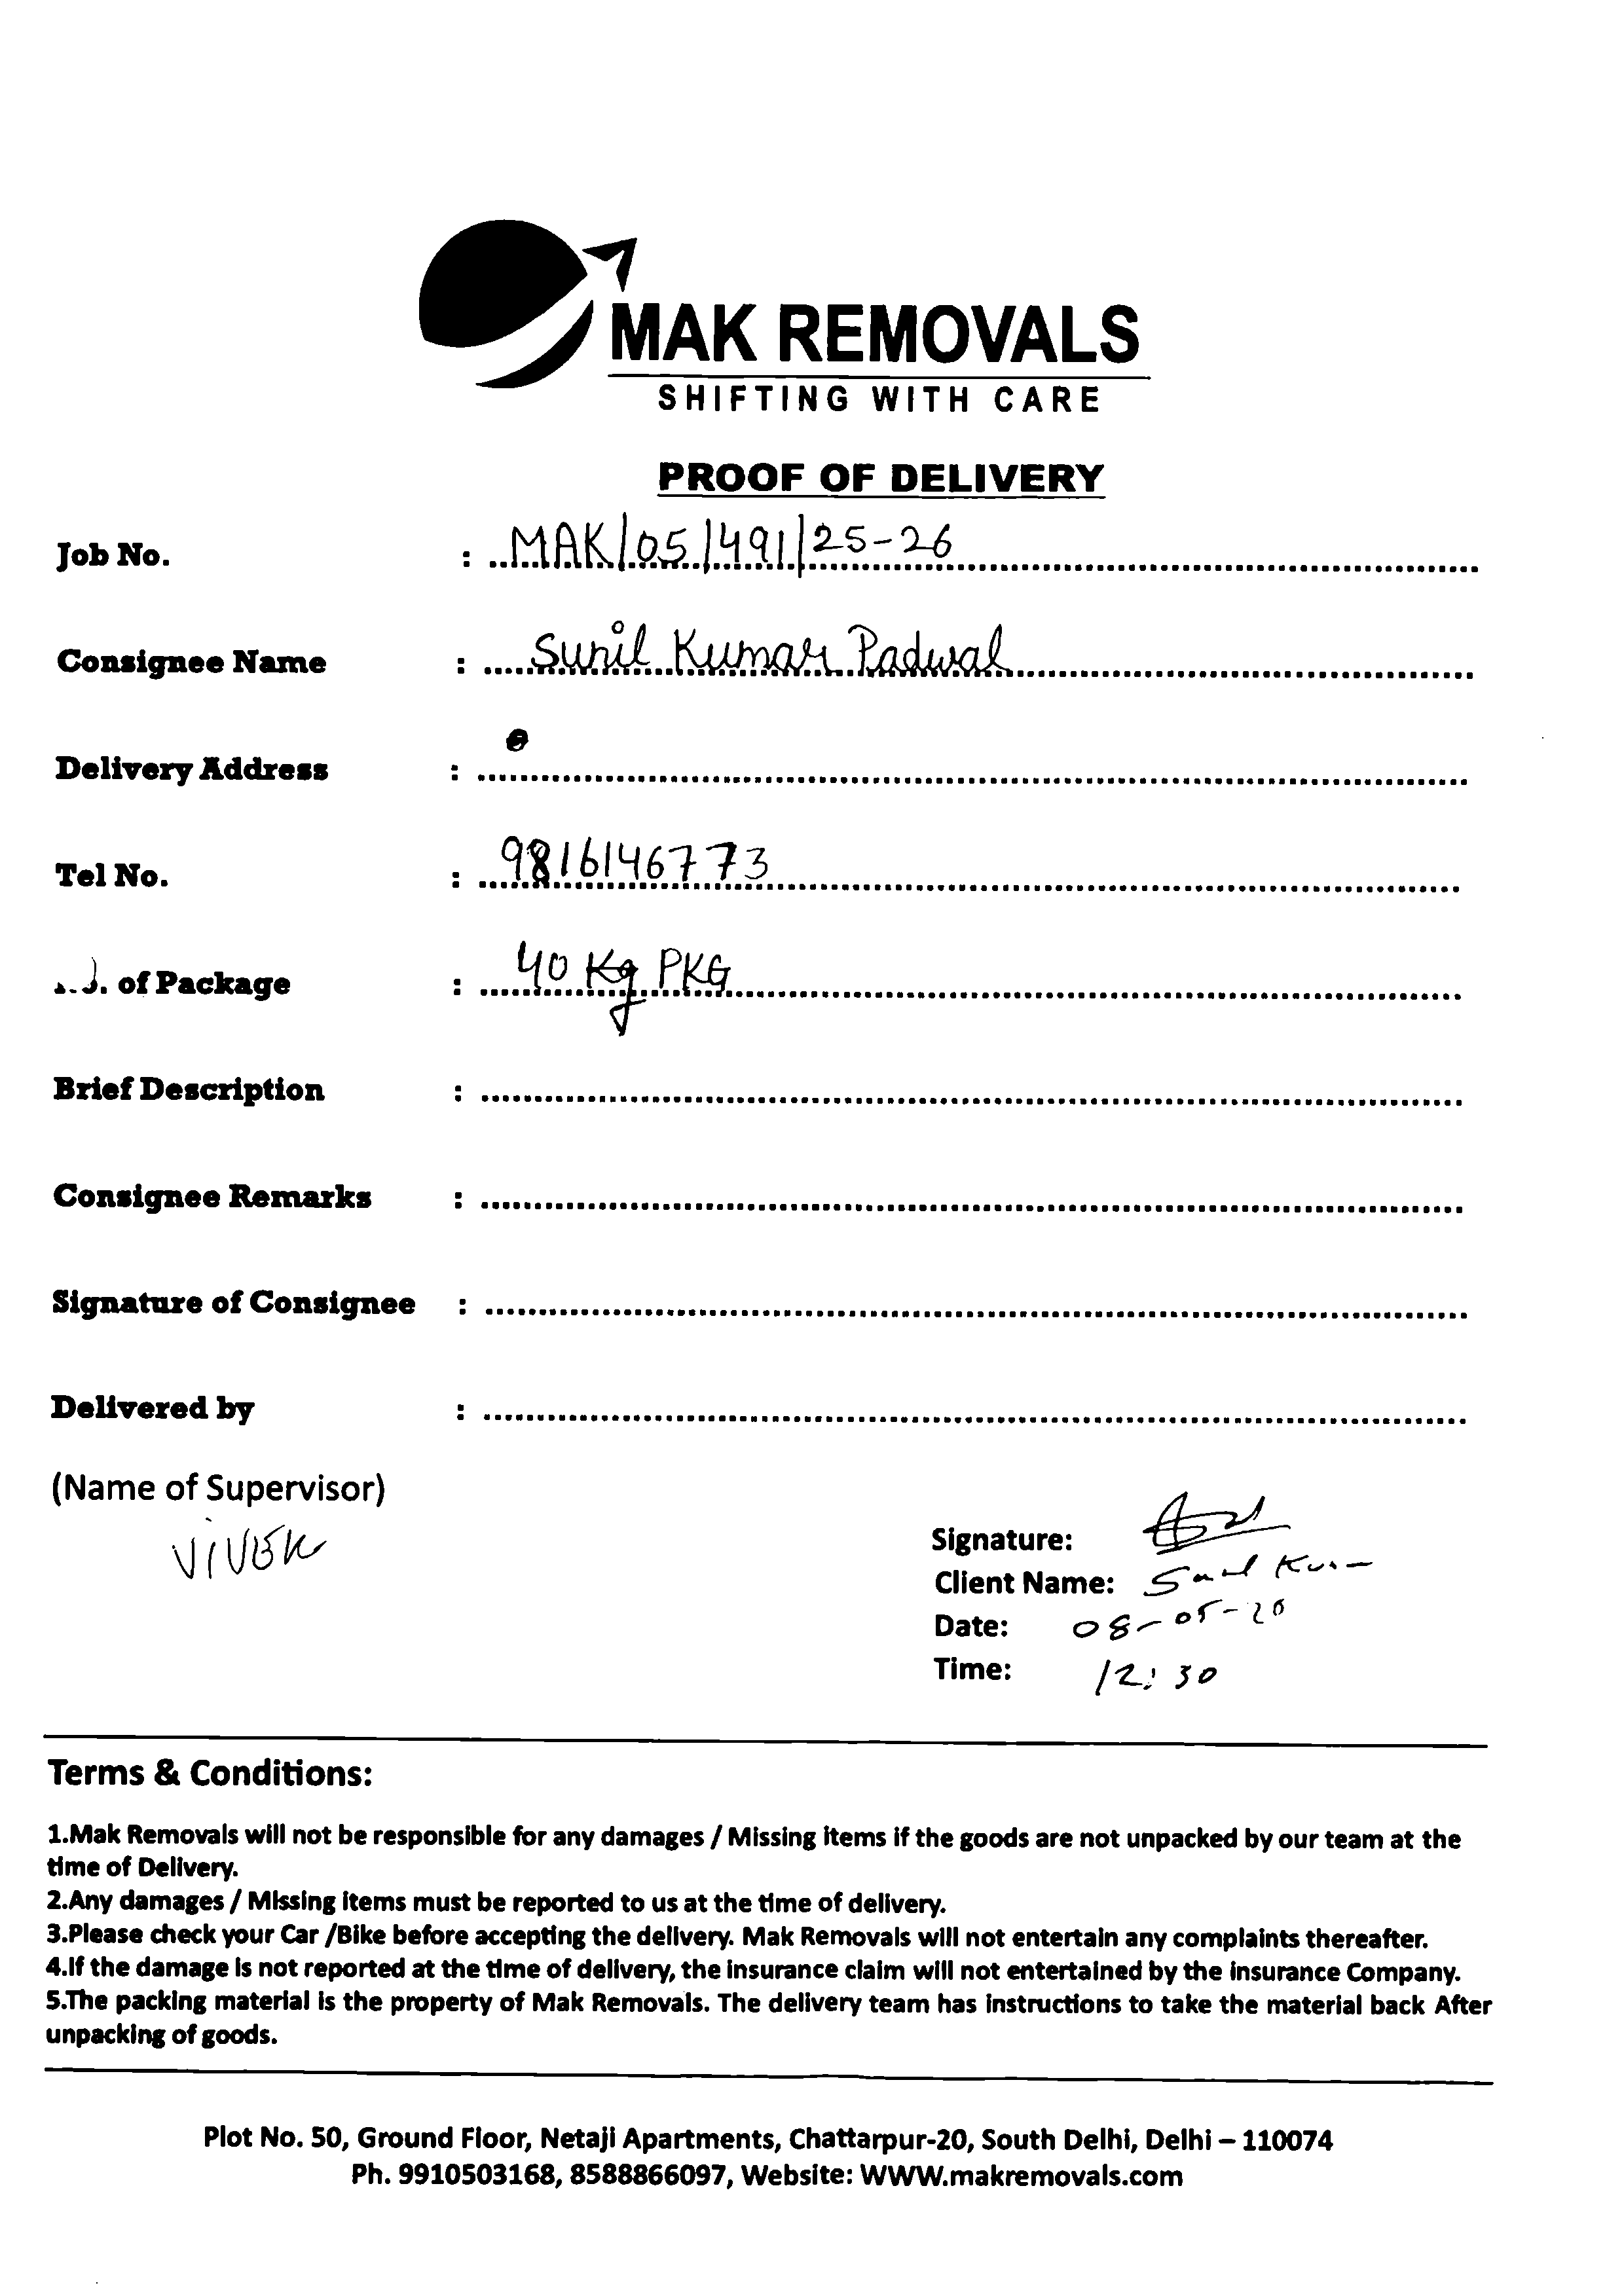 MAK REMOVALS
SHIFTING WITH CARE
PROOF OF DELIVERY
Job No. : MAK/05/491/25-26
Consignee Name : Sunil Kumar Padwal
Delivery Address :
Tel No. : 9816146773
of Package : 40 Kg PKG
Brief Description :
Consignee Remarks :
Signature of Consignee :
Delivered by :
(Name of Supervisor)
VIVEK
Signature:
Client Name: Sunil
Date: 08-05-26
Time: 12:30
Terms & Conditions:
1.Mak Removals will not be responsible for any damages / Missing items if the goods are not unpacked by our team at the
time of Delivery.
2.Any damages / Missing items must be reported to us at the time of delivery.
3.Please check your Car /Bike before accepting the delivery. Mak Removals will not entertain any complaints thereafter.
4.If the damage is not reported at the time of delivery, the insurance claim will not entertained by the insurance Company.
5.The packing material is the property of Mak Removals. The delivery team has instructions to take the material back After
unpacking of goods.
Plot No. 50, Ground Floor, Netaji Apartments, Chattarpur-20, South Delhi, Delhi – 110074
Ph. 9910503168, 8588866097, Website: WWW.makremovals.com